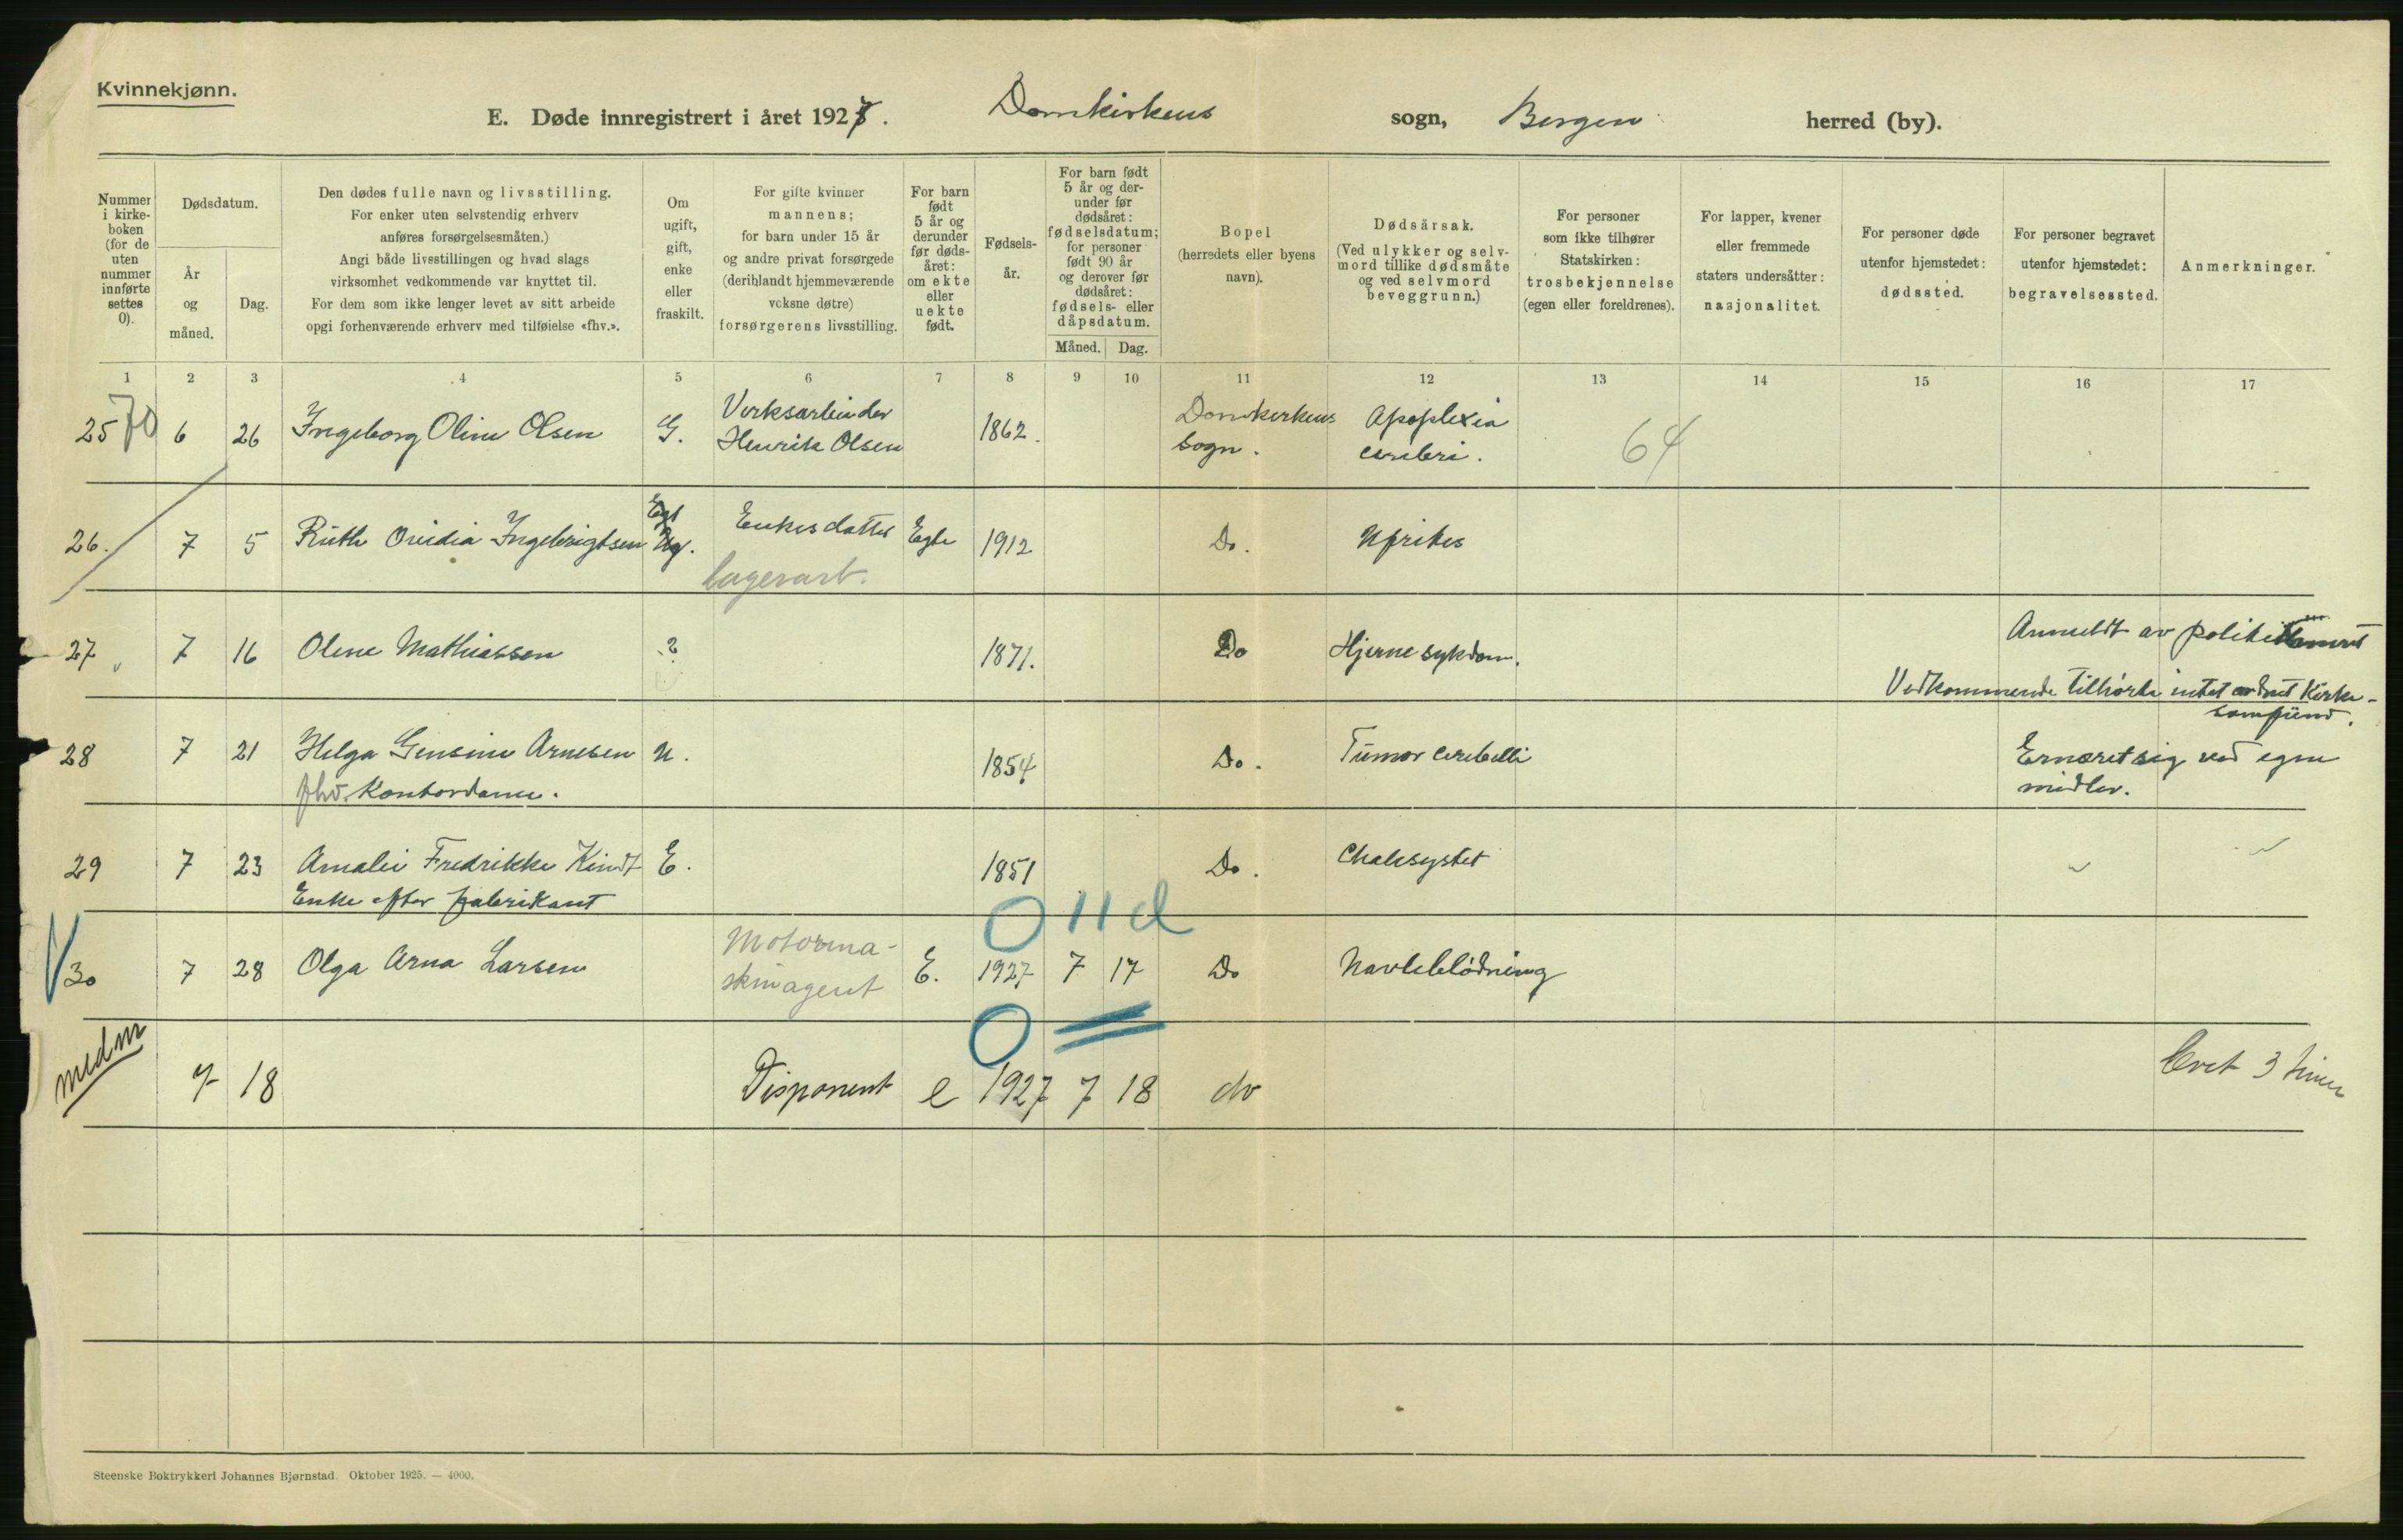 Kvinnekjønn.
E. Døde innregistrert i året 1927. Domkirkens sogn, Bergen herred (by).
Nummer i kirke- boken (for de uten nummer innførte settes 0).
Dødsdatum.
År og måned.
Dag.
Den dødes fulle navn og livsstilling.
For enker uten selvstendig erhverv
anføres forsørgelsesmåten.)
Angi både livsstillingen og hvad slags
virksomhet vedkommende var knyttet til.
For dem som ikke lenger levet av sitt arbeide
opgi forhenværende erhverv med tilføielse «fhv.».
Om ugift, gift, enke eller fraskilt.
For gifte kvinner
mannens;
for barn under 15 år
og andre privat forsørgede
(deriblandt hjemmeværende
voksne døtre)
forsørgerens livsstilling.
For barn født 5 år og derunder før døds- året: om ekte eller uekte født.
Fødsels- år.
For barn født 5 år og der- under før dødsåret: fødselsdatum; for personer født 90 år og derover før dødsåret: fødsels- eller dåpsdatum.
Måned. Dag.
Bopel
(herredets eller byens
navn).
Dødsårsak.
(Ved ulykker og selv-
mord tillike dødsmåte
og ved selvmord
beveggrunn.)
For personer
som ikke tilhører
Statskirken:
trosbekjennelse
(egen eller foreldrenes).
For lapper, kvener
eller fremmede
staters undersåtter:
nasjonalitet.
For personer døde
utenfor hjemstedet:
dødssted.
For personer begravet
utenfor hjemstedet:
begravelsessted.
Anmerkninger.
1 2 3 4 5 6 7 8 9 10 11 12 13 14 15 16 17
25 70 6 26 Ingeborg Oline Olsen G. Verksarbeider Henrik Olsen 1862. Domkirkens sogn. Apoplexia cerebri. 64
26. 7 5 Ruth Ovidia Ingebrigtsen Egt Ug. Enkes datter Egte 1912 Do. Nefrites
lagerarb.
27 7 16 Olene Mathiassen ? 1871. Do Hjernesykdom. Anmeldt av politikamret
Vedkommende tilhørte intet ordnet Kirke-
samfund.
28 7 21 Helga Gensine Arnesen U. 1854 Do. Tumor cerebelli Ernæret sig ved egne
fhv. Kontordame. midler.
29 7 23 Amalie Fredrikke Kindt E. 1851 Do.
Enke efter fabrikant
0 11 d
30 7 28 Olga Arna Larsen Motorma- skinagent E. 1927 7 17 Do Navleblødning
0
medm 7 18 Disponent e 1927 7 18 do Levet 3 timer
Steenske Boktrykkeri Johannes Bjørnstad. Oktober 1925. — 4000.